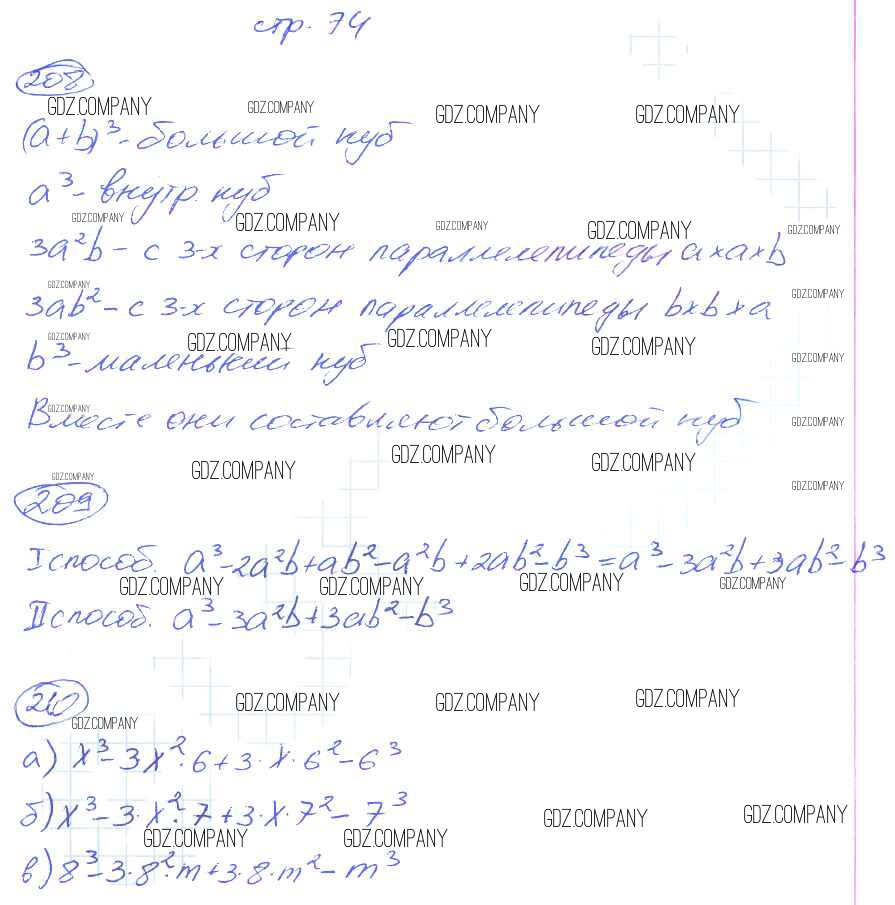 стр. 74
208
GDZ.COMPANY GDZ.COMPANY GDZ.COMPANY GDZ.COMPANY
(a+b)³ - большой куб
a³ - внутр. куб
GDZ.COMPANY GDZ.COMPANY GDZ.COMPANY GDZ.COMPANY GDZ.COMPANY
3a²b - с 3-х сторон параллелепипеды a×a×b
GDZ.COMPANY GDZ.COMPANY
3ab² - с 3-х сторон параллелепипеды b×b×a
GDZ.COMPANY GDZ.COMPANY GDZ.COMPANY GDZ.COMPANY GDZ.COMPANY
b³ - маленький куб
GDZ.COMPANY GDZ.COMPANY
Вместе они составляют большой куб
GDZ.COMPANY GDZ.COMPANY GDZ.COMPANY GDZ.COMPANY GDZ.COMPANY
209
I способ. a³-2a²b+ab²-a²b+2ab²-b³=a³-3a²b+3ab²-b³
GDZ.COMPANY GDZ.COMPANY GDZ.COMPANY GDZ.COMPANY
II способ. a³-3a²b+3ab²-b³
210
GDZ.COMPANY GDZ.COMPANY GDZ.COMPANY GDZ.COMPANY
а) x³-3x²·6+3·x·6²-6³
б) x³-3·x²·7+3·x·7²-7³
GDZ.COMPANY GDZ.COMPANY GDZ.COMPANY GDZ.COMPANY
в) 8³-3·8²·m+3·8·m²-m³